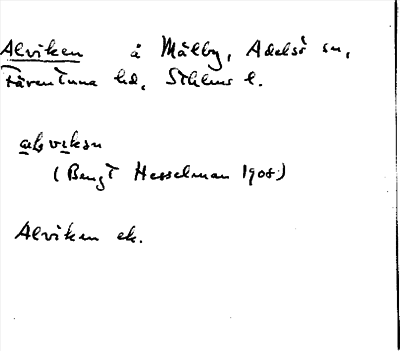 Alviken å Målby, Adelsö sn,
Färentuna hd, Sthlms l.
alviksn
(Bengt Hesselman 1908)
Alviken ek.